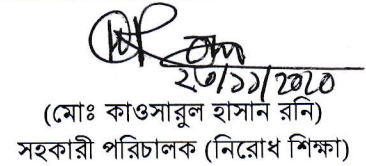 ২৩/১১/2020
(মোঃ কাওসারুল হাসান রনি)
সহকারী পরিচালক (নিরোধ শিক্ষা)